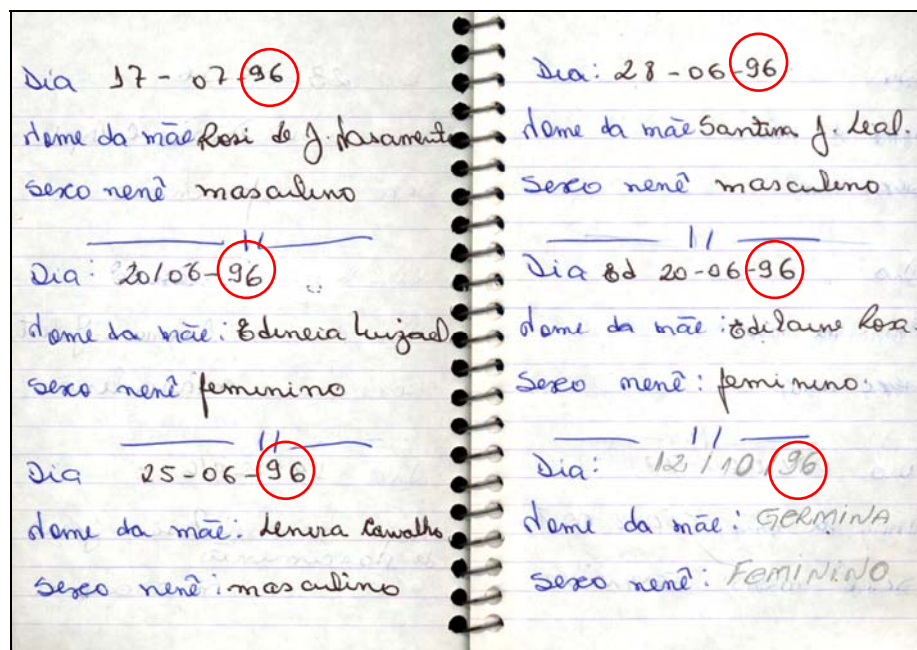 Dia 17-07-96
Nome da mãe Rosi de J. Nasamento
Sexo nenê masculino
Dia: 20/06-96
Nome da mãe: Edineia
Sexo nenê feminino
Dia 25-06-96
Nome da mãe: Lenira Carvalho
Sexo nenê: masculino
Dia: 28-06-96
Nome da mãe Santina J. Leal.
Sexo nenê masculino
Dia Ed 20-06-96
Nome da mãe: Edilaine Rosa
Sexo nenê: feminino.
Dia: 12/10/96
Nome da mãe: GERMINA
Sexo nenê: FEMININO